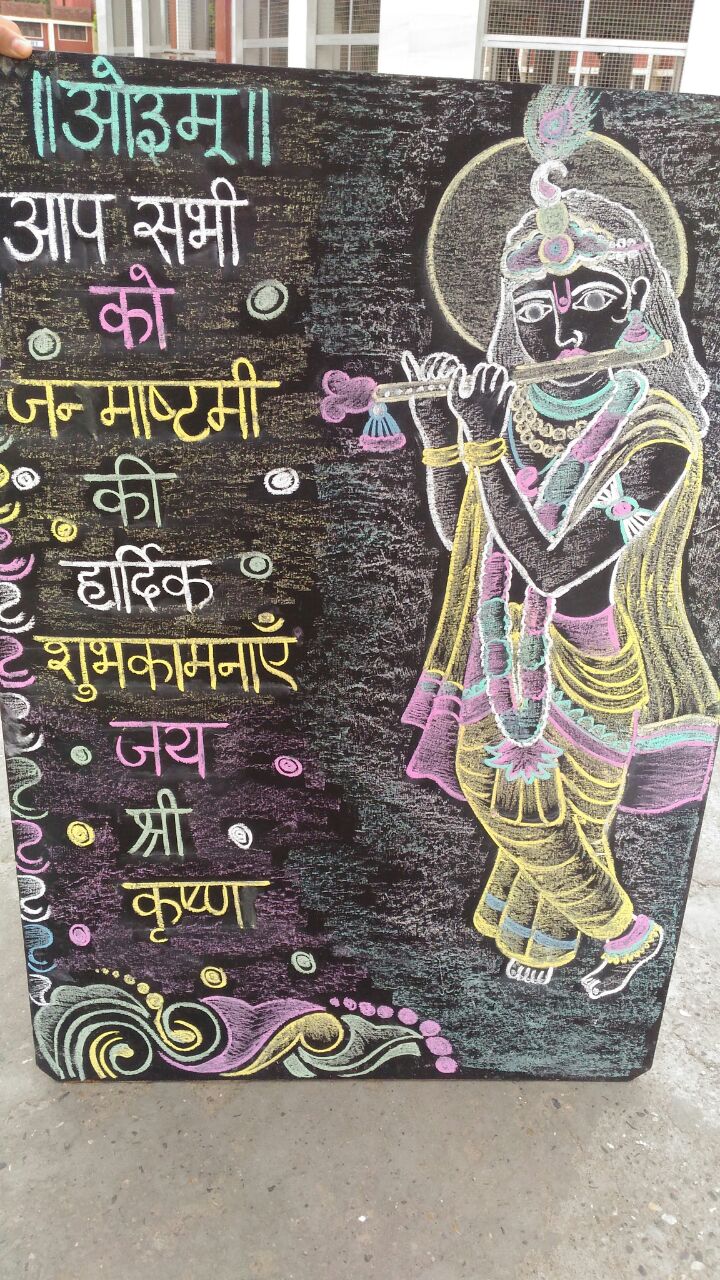 ॥ओ३म्॥
आप सभी
को
जन्माष्टमी
की
हार्दिक
शुभकामनाएँ
जय
श्री
कृष्ण